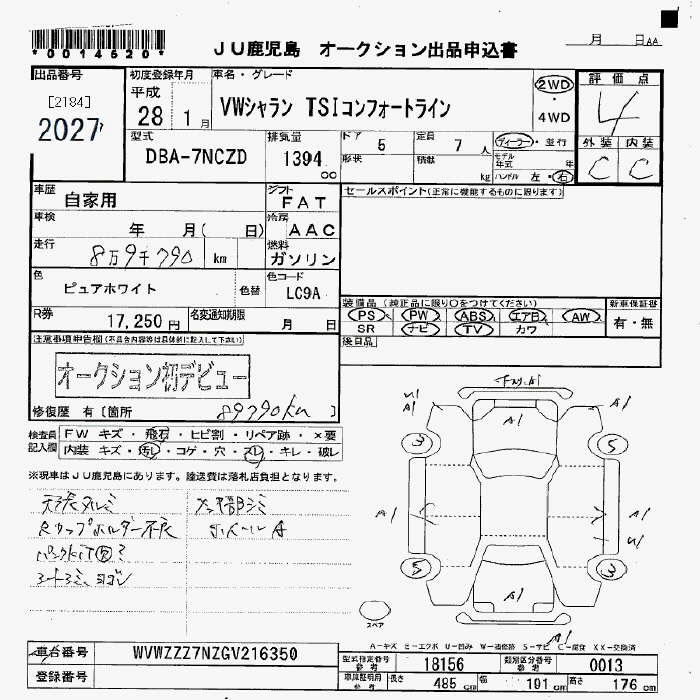 *0014620*
JU鹿児島 オークション出品申込書
月 日AA
出品番号 初度登録年月 車名・グレード 評価点
[2184] 平成 VWシャラン TSIコンフォートライン 2WD 4
2027 28 1月 ・4WD
型式 排気量 ドア 5 定員 7人 ディーラー・並行 外装 内装
DBA-7NCZD 1394 形状 積載 kg モデル年式 年 C C
ハンドル 左・右
車歴 自家用 シフト FAT セールスポイント(正常に機能するものに限ります)
車検 年 月( 日) 冷房 AAC
走行 8万9千790 km 燃料 ガソリン
色 ピュアホワイト 色替 色コード LC9A
装備品(純正品に限り○をつけてください) 新車保証書
R券 17,250円 名変通知期限 月 日 PS PW ABS エアB AW 有・無
SR ナビ TV カワ
注意事項申告欄(不具合内容等は具体的に記入して下さい) 後日品
オークション初デビュー
修復歴 有[箇所 89790km ]
検査員記入欄 FW キズ・飛石・ヒビ割・リペア跡・×要
内装 キズ・汚レ・コゲ・穴・スレ・キレ・破レ
※現車はJU鹿児島にあります。陸送費は落札店負担となります。
天張タルミ
ホイールA
A1
A1
A1
A1
3
5
A1
A1
5
3
A1
スペア
A1
A-キズ E-エクボ U-凹み W-補修跡 S-サビ C-腐食 XX-交換済
車台番号 WVWZZZ7NZGV216350 型式指定番号 参考 18156 類別区分番号 参考 0013
登録番号 車庫証明用 参考 長さ 485cm 幅 191cm 高さ 176cm